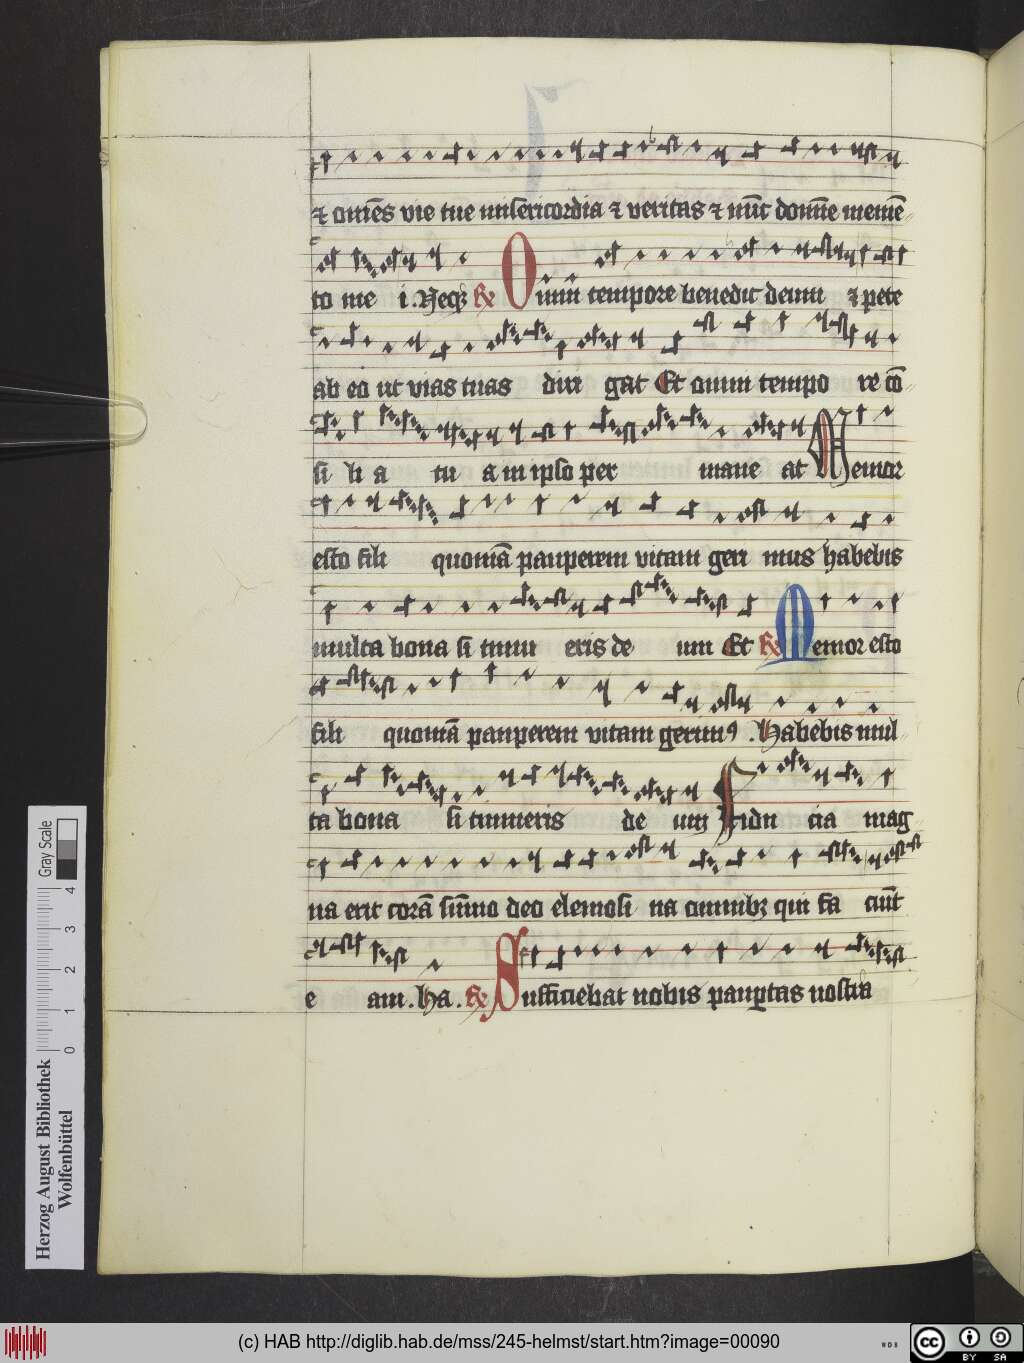 ⁊ om̄es vie tue misericordia ⁊ veritas ⁊ nūc domīne memē
to me i. Neqꝫ R̷ Omni tempore benedic deum ⁊ pete
ab eo ut vias tuas diri gat Et omni tempo re cō
si li a tu a in ipso per mane at Memor
esto fili quoniā pauperem vitam geri mus habebis
multa bona si timu eris de um Et R̷ Memor esto
fili quoniā pauperem vitam gerimꝰ . Habebis mul
ta bona si timueris de um Fidu cia mag
na erit corā sūmo deo elemosi na omnibꝫ qui fa ciūt
e am . Ha . R̷ Sufficiebat nobis paup̱tas nostra
Herzog August Bibliothek
Wolfenbüttel
Gray Scale
0 1 2 3 4
(c) HAB http://diglib.hab.de/mss/245-helmst/start.htm?image=00090
WDB
cc BY SA